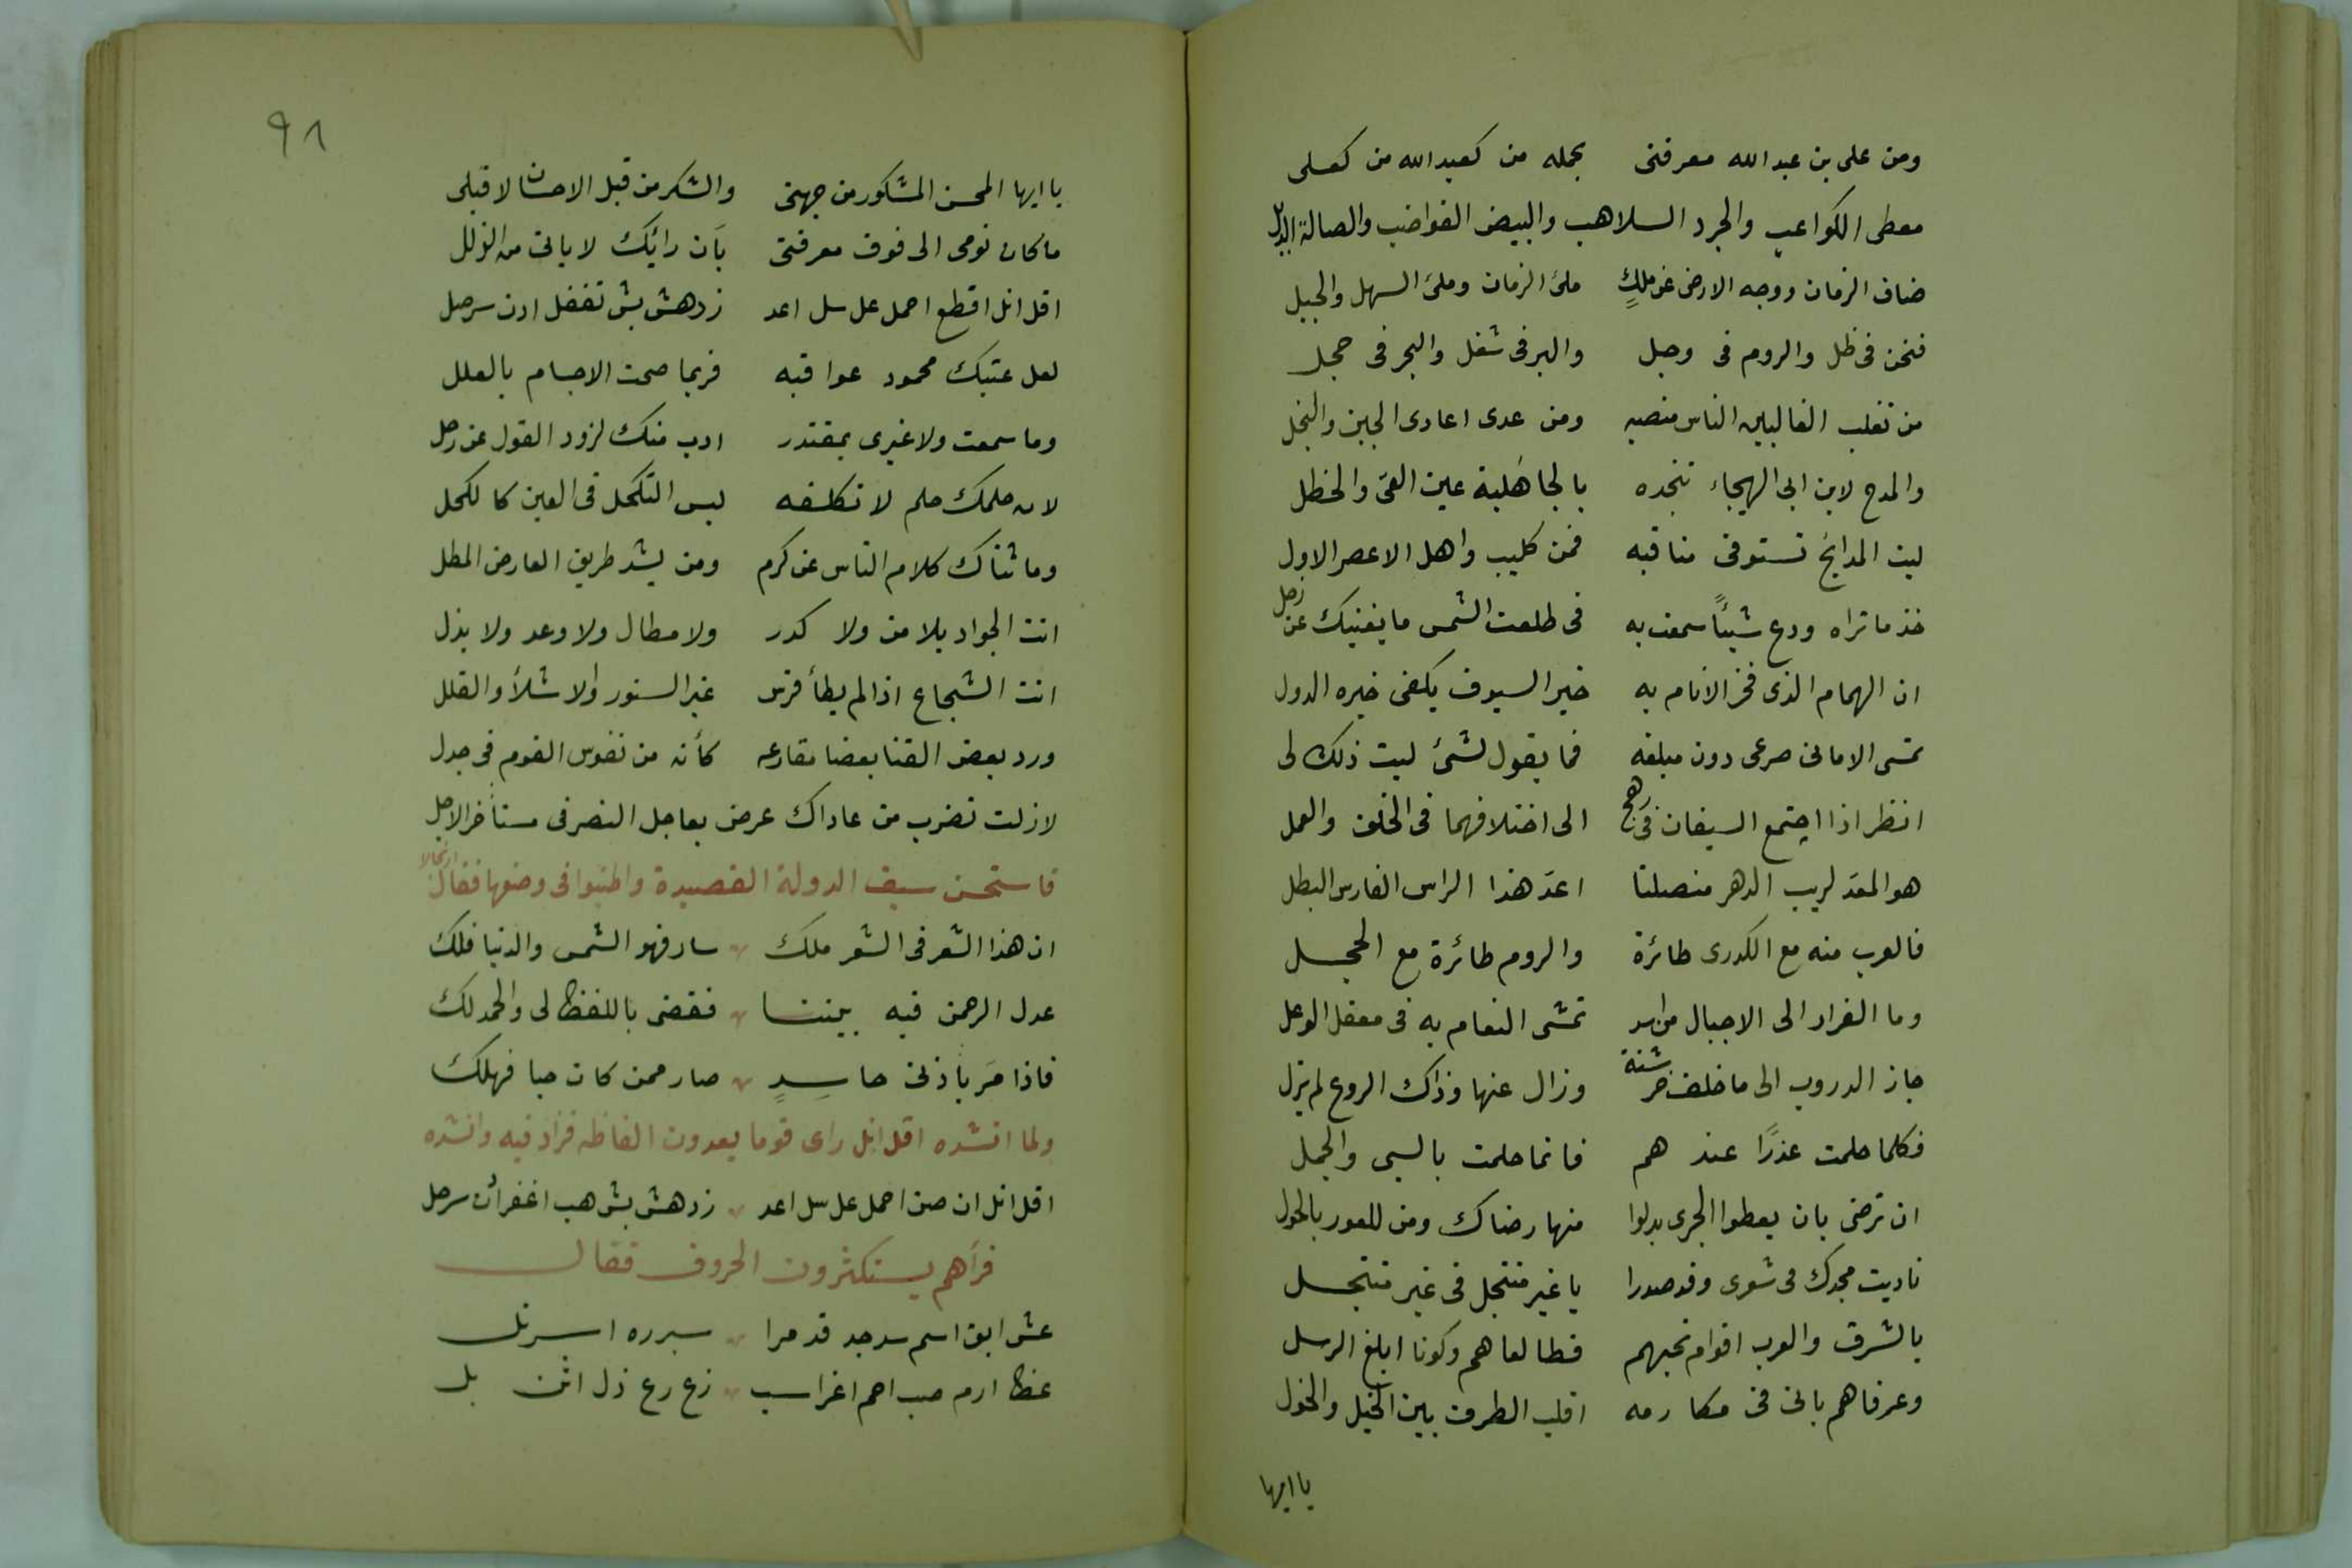 ومن على بن عبد الله معرفتى بحمله من كعبد الله من كعلى
معطى الكواعب والجرد السلاهب والبيض القواضب والعسالة الذبل
ضاق الزمان ووجه الارض عن ملكٍ ملئ الزمان وملئ السهل والجبل
فنحن فى ظل والروم فى وجل والبر فى شغل والبحر فى خجل
من تغلب الغالبين الناس منصبه ومن عدى اعادى الجبن والبخل
والمدح لابن ابى الهيجاء تنجده بالجاهَلية عين العىّ والخطل
ليت المدايح تستوفى مناقبه فمن كليب واهل الاعصر الاول
خذ ما تراه ودع شيئًا سمعت به فى طلعت الشمس ما يغنيك عن زحل
ان الهمام الذى فخر الانام به خير السيوف بكفى خيره الدول
تمسى الامانى صرعى دون مبلغه فما يقول لشئ ليت ذلك لى
انظر اذا اجتمع السيفان فى رهج الى اختلافهما فى الخلق والعمل
هو المعد لريب الدهر منصلتا اعدّ هذا الراس الفارس البطل
فالعرب منه مع الكدرى طائرة والروم طائرة مع الحجل
وما الفرار الى الاجبال من اسد تمشى النعام به فى معقل الوعل
جاز الدروب الى ما خلف خرشنة وزال عنها وذاك الروع لم يزل
فكلما حلمت عذرًا عند هم فانما حلمت بالسبى والجمل
ان ترضى بان يعطوا الجزى بدلوا منها رضاك ومن للعور بالحول
ناديت مجدك فى شعرى وقد صدرا يا غير منتحل فى غير منتحل
بالشرق والعرب اقوام نحبهم فطالعاهم وكونا ابلغ الرسل
وعرفاهم بانى فى مكارمه اقلب الطرف بين الخيل والخول
يا ايها
٩٨
يا ايها المحسن المشكور من جهتى والشكر من قبل الاحسان لا قبلى
ما كان نومى الى فوق معرفتى بَان رائيك لا ياتى من الزلل
اقل انل اقطع احمل عل سل اعد زد هش بش تفضل ادن سر صل
لعل عتبك محمود عواقبه فربما صحت الاجسام بالعلل
وما سمعت ولا غيرى بمقتدر ادب منك لزور القول عن رجل
لان حلمك حلم لا تكلفه ليس التكحل فى العين كالكحل
وما ثناك كلام الناس عن كرم ومن يسد طريق العارض الهطل
انت الجواد بلا من ولا كدر ولا مطال ولا وعد ولا بذل
انت الشجاع اذا لم يطأ فرس غير السنور والاشلأ والقلل
ورد بعض القنا بعضا مقارعه كأنه من نفوس القوم فى جدل
لا زلت تضرب من عاداك عرض بعاجل النصر فى مستأخر الاجل
فاستحسن سيف الدولة القصيدة واطنبوا فى وصفها فقال ارتجالا
ان هذا الشعر فى الشعر ملك سار فهو الشمس والدنيا فلك
عدل الرحمن فيه بيننا فقضى باللفظ لى والحمد لك
فاذا مَر بأذنى حاسِدٍ صار ممن كان حيا فهلك
ولما انشده اقل انل راى قوما يعدون الفاظه فزاد فيه وانشده
اقل انل ان صن احمل عل سل اعد زد هش بش هب اغفر أن سر صل
فرآهم يستكثرون الحروف فقال
عش ابق اسم سد جد قد مرا سر ره اسر نل
غظ ارم صب احم اغز اسب زع رع ذل اثن بل